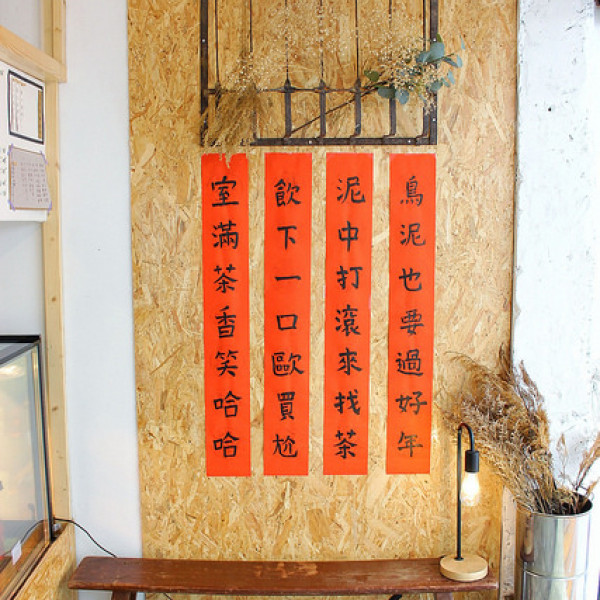 鳥泥也要過好年
泥中打滾來找茶
飲下一口歐買尬
室滿茶香笑哈哈